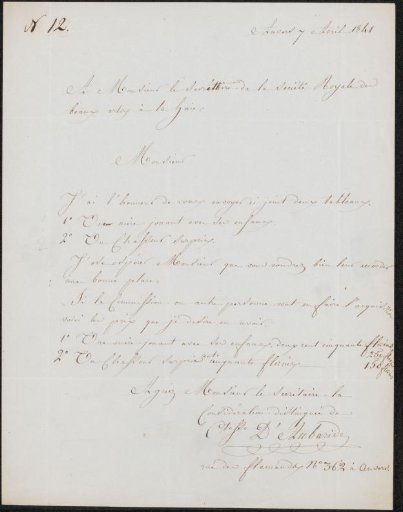 N 12.
Anvers 7 Avril 1841
A Monsieur le Secrétaire de la Société Royale des
beaux arts à la Haie.
Monsieur
J'ai l'honneur de vous envoyer ci joint deux tableaux
1° Une mère jouant avec ses enfans.
2° Un Chasseur surpris.
J'ose espérer Monsieur que vous voudrez bien leur accorder
une bonne place.
Si la Commission ou autre personne veut en faire l'acquisition
voici les prix que je désire en avoir
1° Une mère jouant avec ses enfans deux cent cinquante florins
250 florins
2° Un Chasseur surpris cinquante florins
150 florins
Agréez Monsieur le Secrétaire la
Considération distinguée de
D'Aubarède
rue des flamands N° 362 à Anvers.